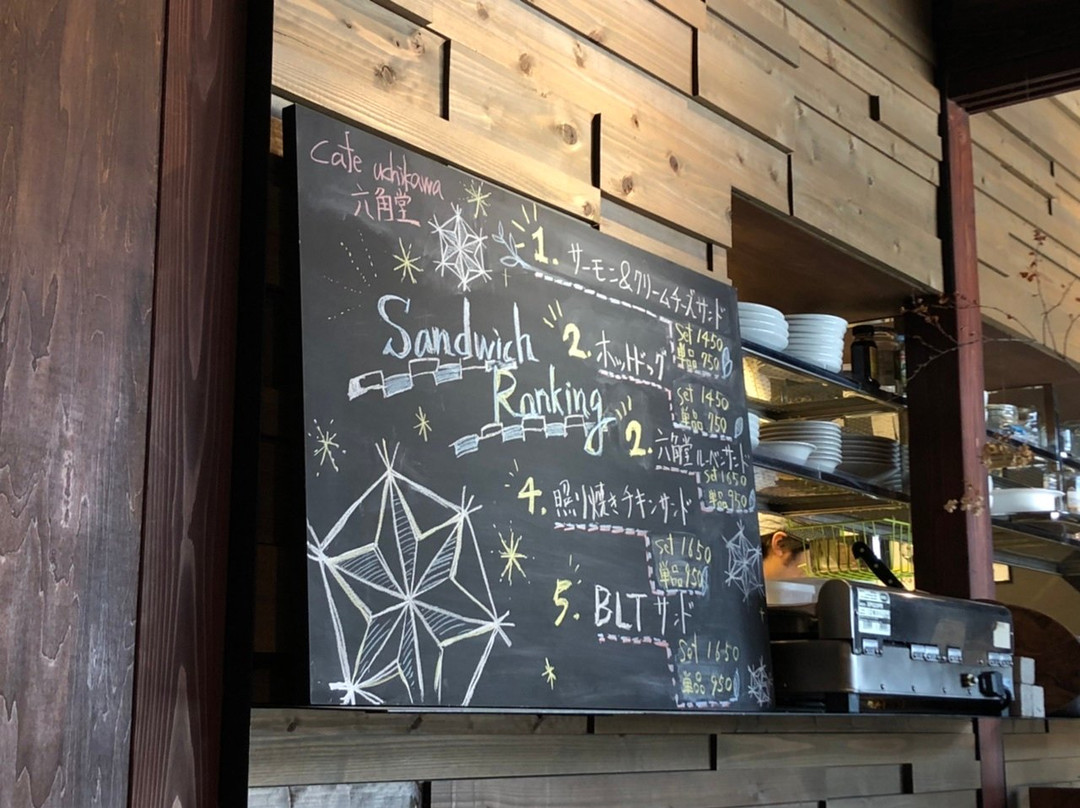 Cafe uchikawa
六角堂
Sandwich
Ranking
1. サーモン&クリームチーズサンド
set 1450
単品 750
2. ホットドッグ
set 1450
単品 750
2. 六角堂ルーベンサンド
set 1650
単品 950
4. 照り焼きチキンサンド
set 1650
単品 950
5. BLTサンド
set 1650
単品 950